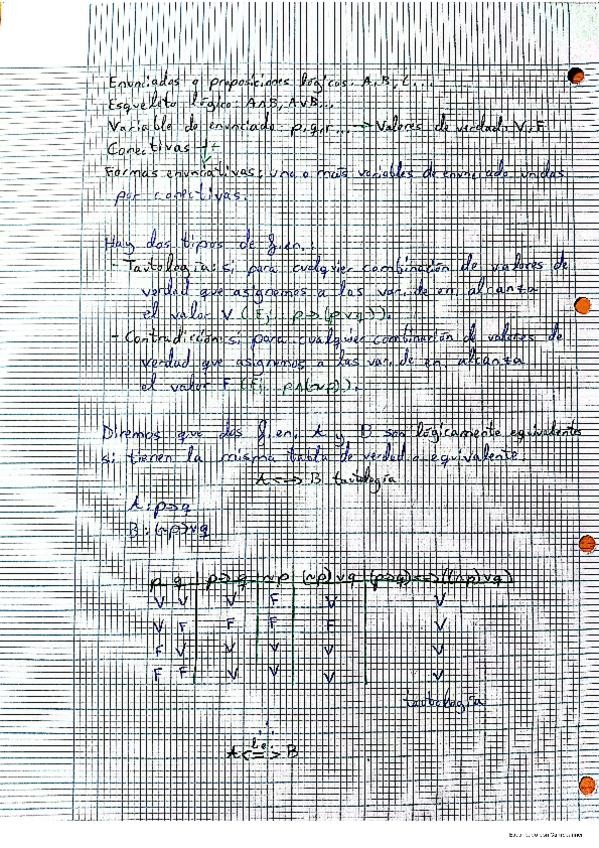 Enunciados o proposiciones lógicos: A, B, C...
Esqueleto lógico: A∧B, A∨B...
Variable de enunciado: p, q, r... → Valores de verdad: V, F
Conectivas
Formas enunciativas: una o más variables de enunciado unidas
por conectivas.
Hay dos tipos de f.en.:
- Tautología: si para cualquier combinación de valores de
verdad que asignemos a las var. de en. alcanza
el valor V (Ej: p→(p∨q)).
- Contradicción: si para cualquier combinación de valores de
verdad que asignemos a las var. de en. alcanza
el valor F (Ej: p∧(~p)).
Diremos que dos f.en. A y B son lógicamente equivalentes
si tienen la misma tabla de verdad o equivalente.
A<->B tautología
A: p→q
B: (~p)∨q
p q p→q ~p (~p)∨q (p→q)<->((~p)∨q)
V V V F V V
V F F F F V
F V V V V V
F F V V V V
tautología
A <=> B